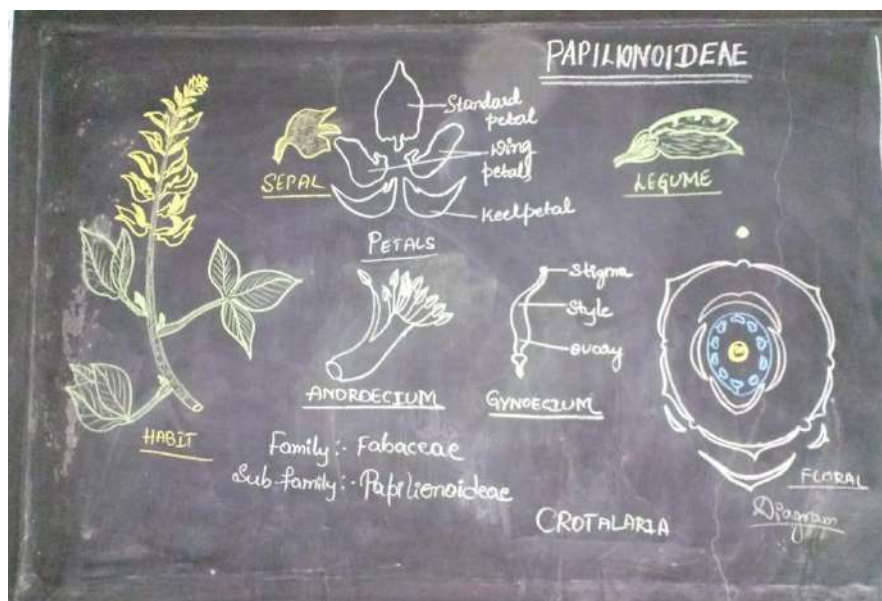 PAPILIONOIDEAE
Standard
petal
Wing
petals
SEPAL
Keelpetal
PETALS
LEGUME
Stigma
Style
Ovary
ANDROECIUM
GYNOECIUM
HABIT
Family:- Fabaceae
Sub-family:- Papilionoideae
FLORAL
Diagram
CROTALARIA